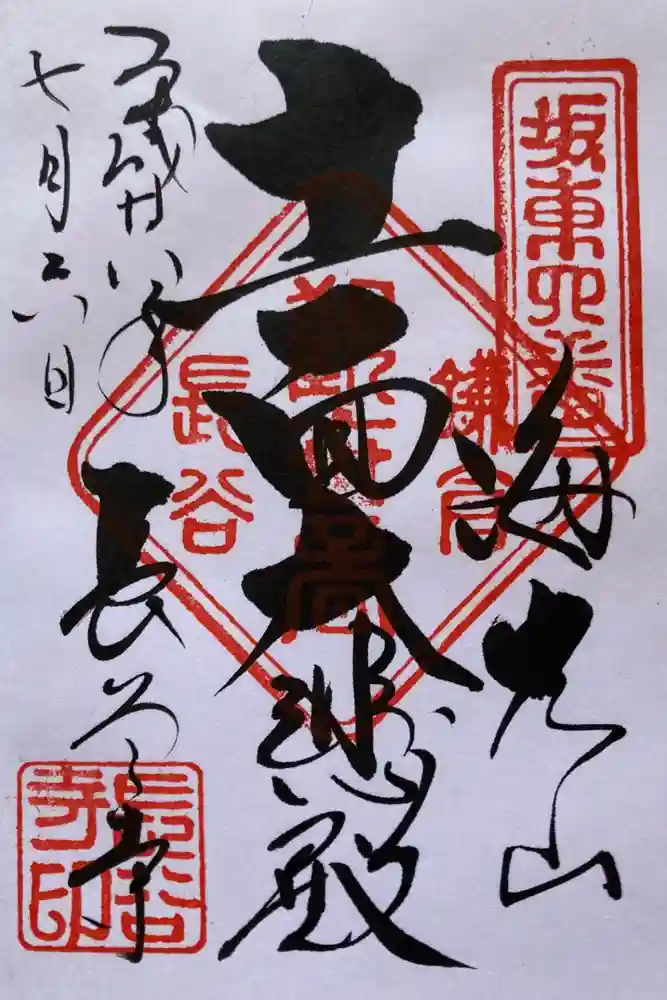 坂東四番
海光山
鎌倉
十一面大悲殿
長谷
平成廿八年
七月六日
長谷寺
長谷寺印